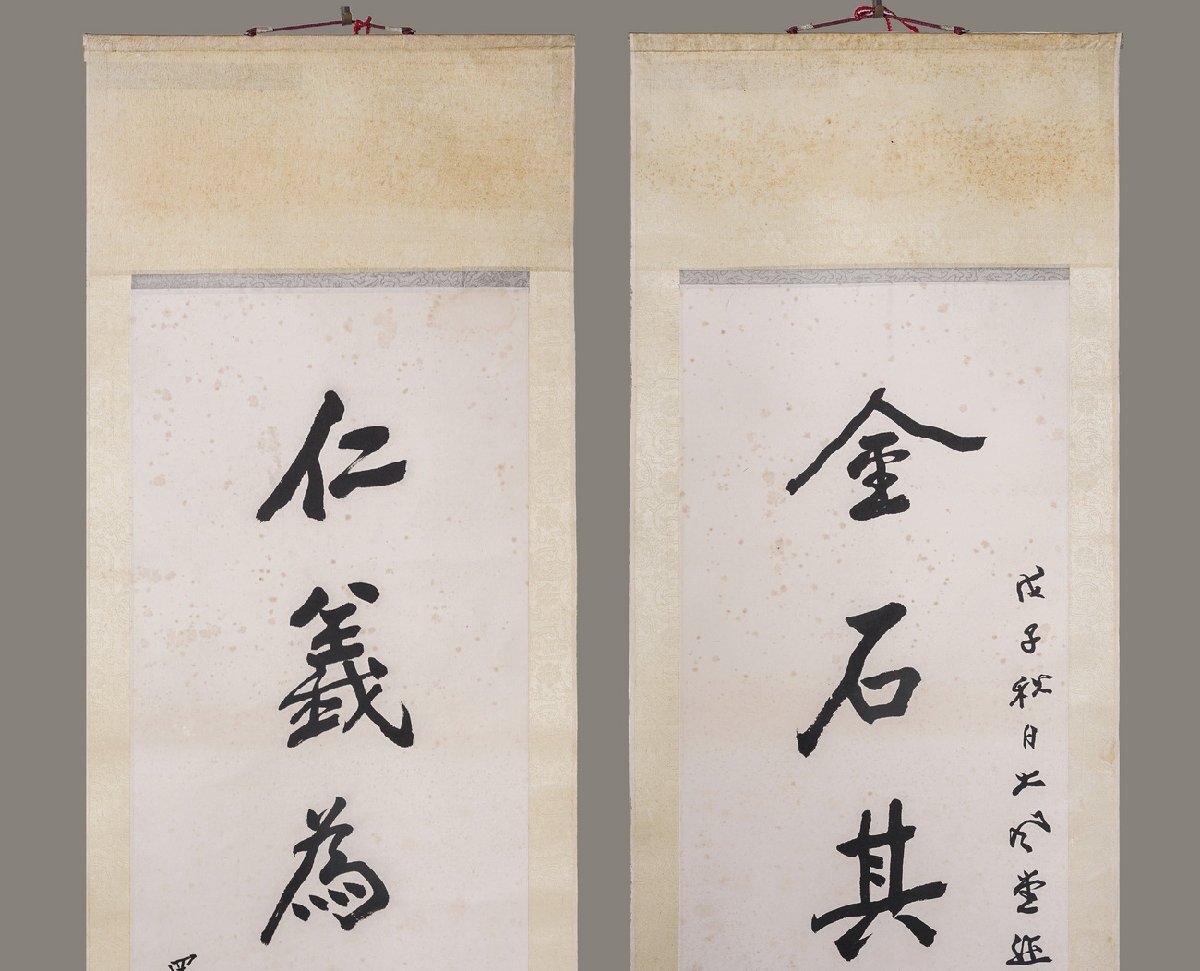 戊子秋日大風堂
金石其
仁義為